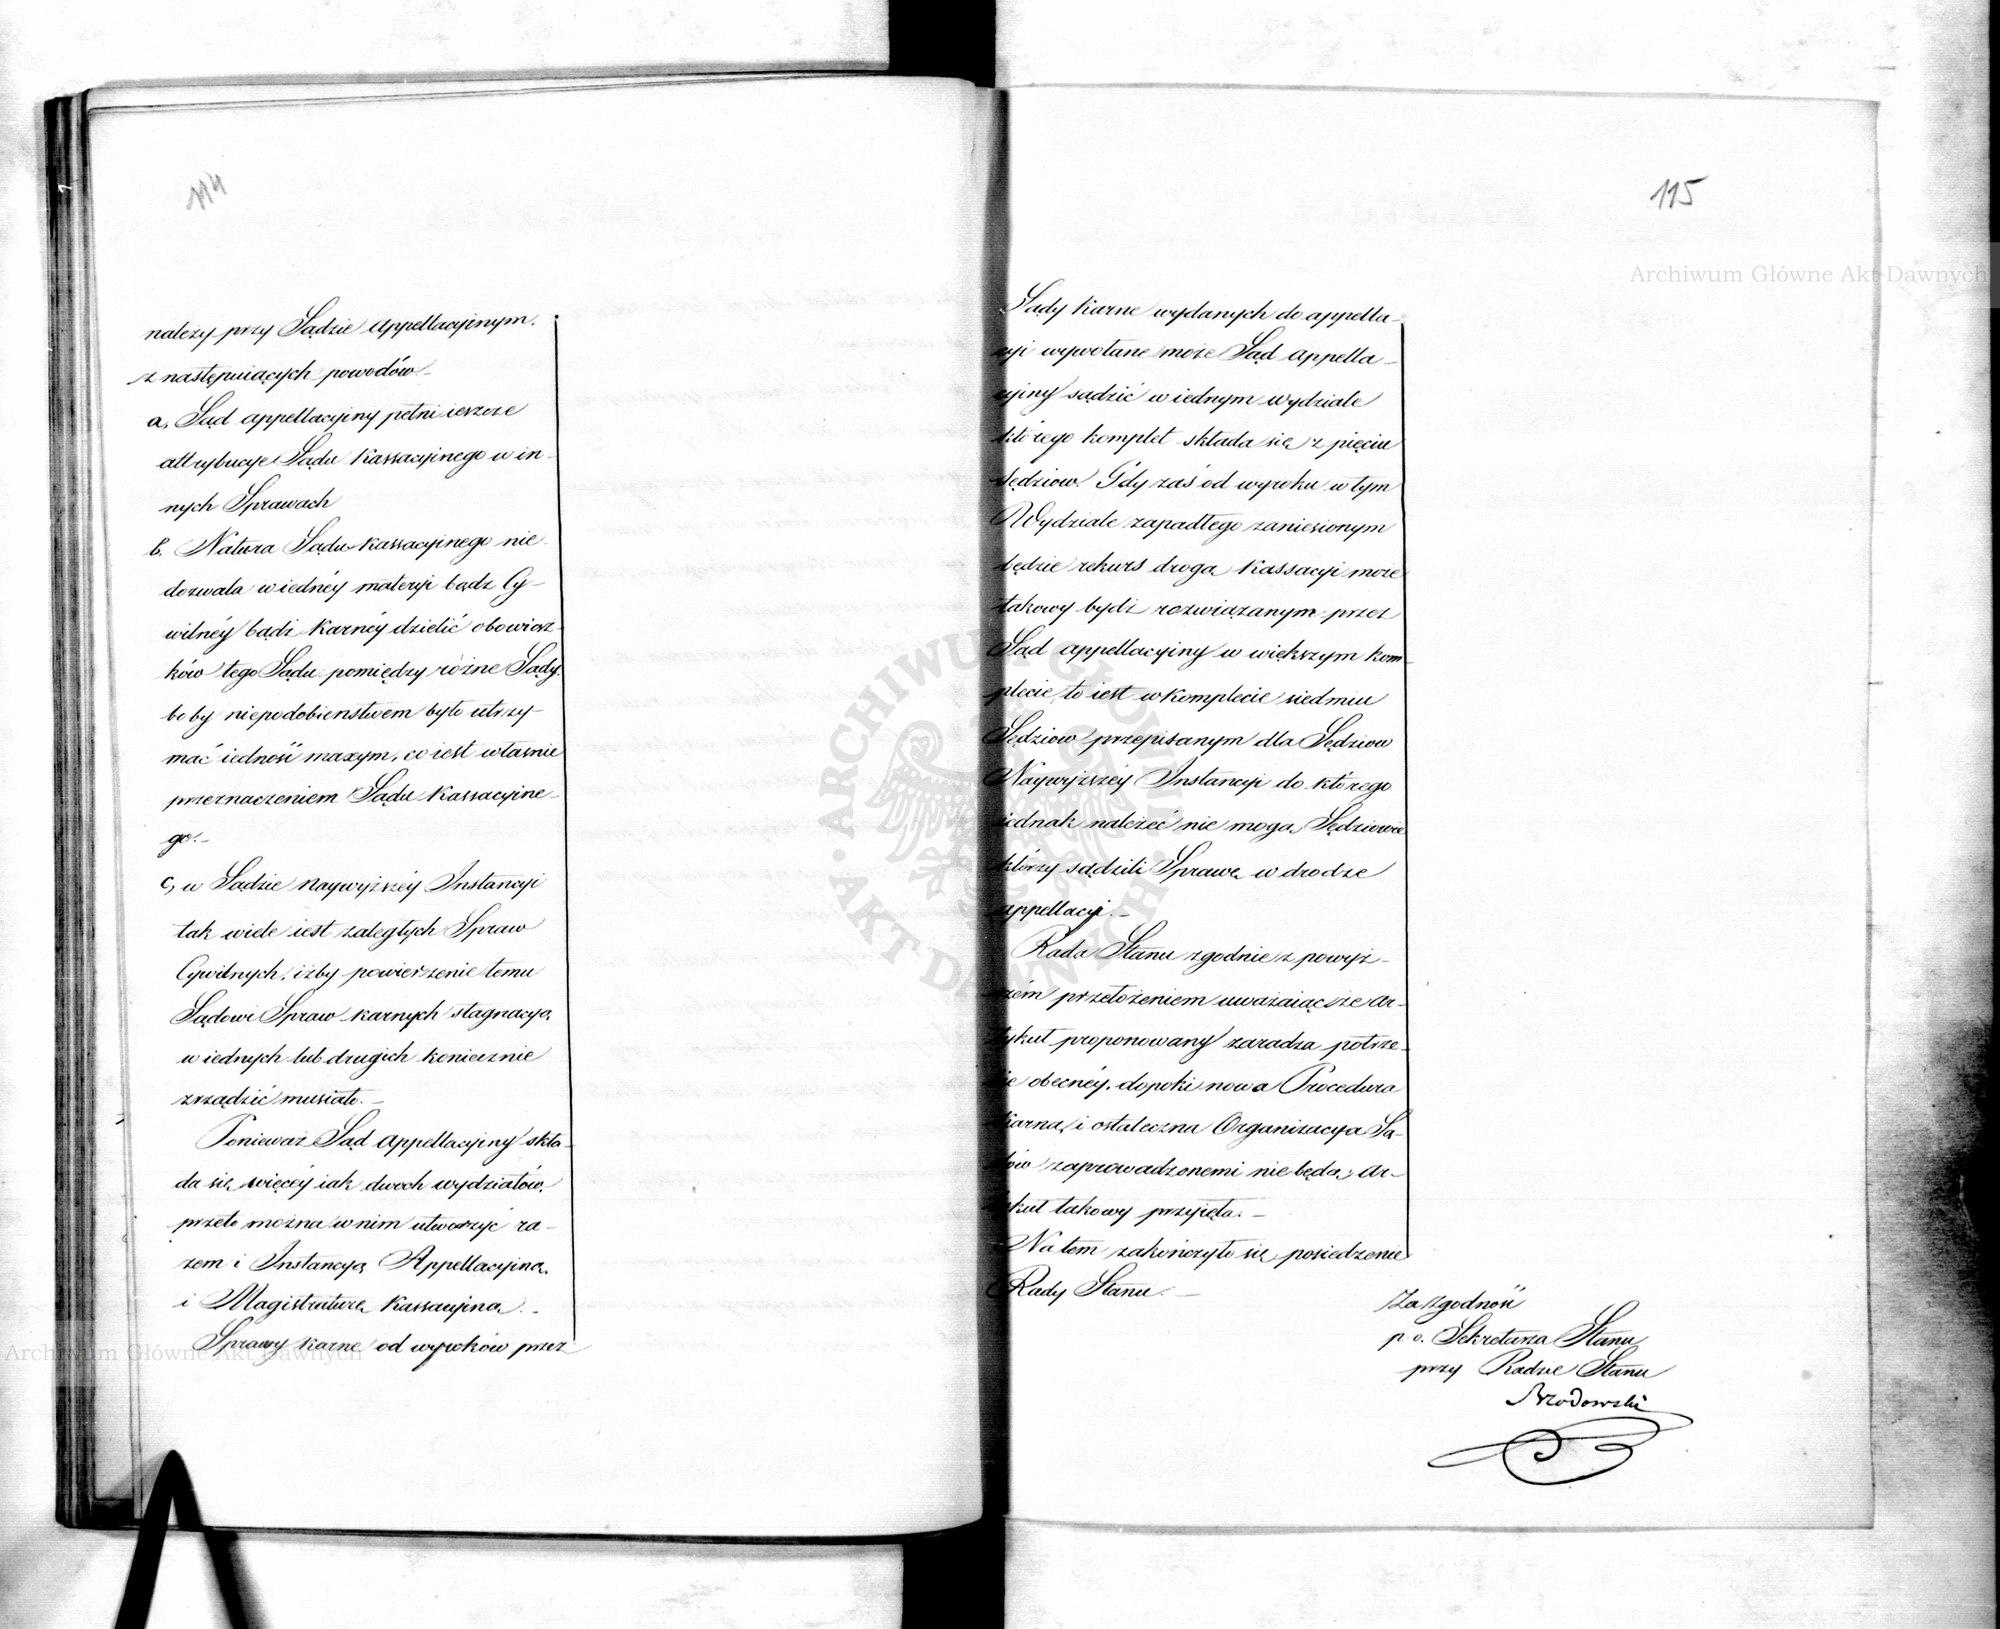 114
należy przy Sądzie appellacyinym.
z następuiących powodów
a, Sąd appellacyiny pełni ieszcze
attrybucye Sądu Kassacyinego w in-
nych Sprawach
b. Natura Sądu Kassacyinego nie
dozwala w iednéy materyi bądz Cy-
wilnéy bądź Karnéy dzielić obowiąz-
ków tego Sądu pomiędzy różne Sądy
boby niepodobieństwem było utrzy-
mać iedność maxym, co iest własnie
przeznaczeniem Sądu Kassacyine-
go.-
c, w Sądzie Naywyższéy Instancyi
tak wiele iest zaległych Spraw
Cywilnych, iżby powierzenie temu
Sądowi Spraw karnych stagnacyą
w iednych lub drugich koniecznie
zrządzić musiało. -
Ponieważ Sąd appellacyiny skła-
da się więcéy iak dwoch wydziałów,
przeto można w nim utworzyć ra-
zem i Instancyą Appellacyiną,
i Magistraturę Kassacyiną. -
Sprawy karne od wyroków przez
115
Sądy Karne wydanych do appella-
cyi wywołane może Sąd appella-
cyiny sądzić w iednym wydziale
którego komplet składa się z pięciu
Sędziow. Gdy zaś od wyroku w tym
Wydziale zapadłego zaniesionym
będzie rekurs drogą Kassacyi może
takowy bydź rozwiązanym przez
Sąd appellacyiny w większym kom-
plecie, to iest w komplecie siedmiu
Sędziow przepisanym dla Sędziow
Naywyższéy Instancyi do którego
iednak należeć nie mogą Sędziowie
którzy sądzili Sprawę w drodze
appellacyi. -
Rada Stanu zgodnie z powyż-
szém przełożeniem uważaiąc że ar-
tykuł proponowany zaradza potrze-
bie obecnéy, dopoki nowa Procedura
Karna, i ostateczna Organizacya Są-
dów zaprowadzonemi nie będą, ar-
tykuł takowy przyięła. -
Na tem zakończyło się posiedzenie
Rady Stanu. -
Za zgodność
p. o. Sekretarza Stanu
przy Radzie Stanu
Brodowski
Archiwum Główne Akt Dawnych
Archiwum Główne Akt Dawnych
ARCHIWUM GŁÓWNE · AKT DAWNYCH ·